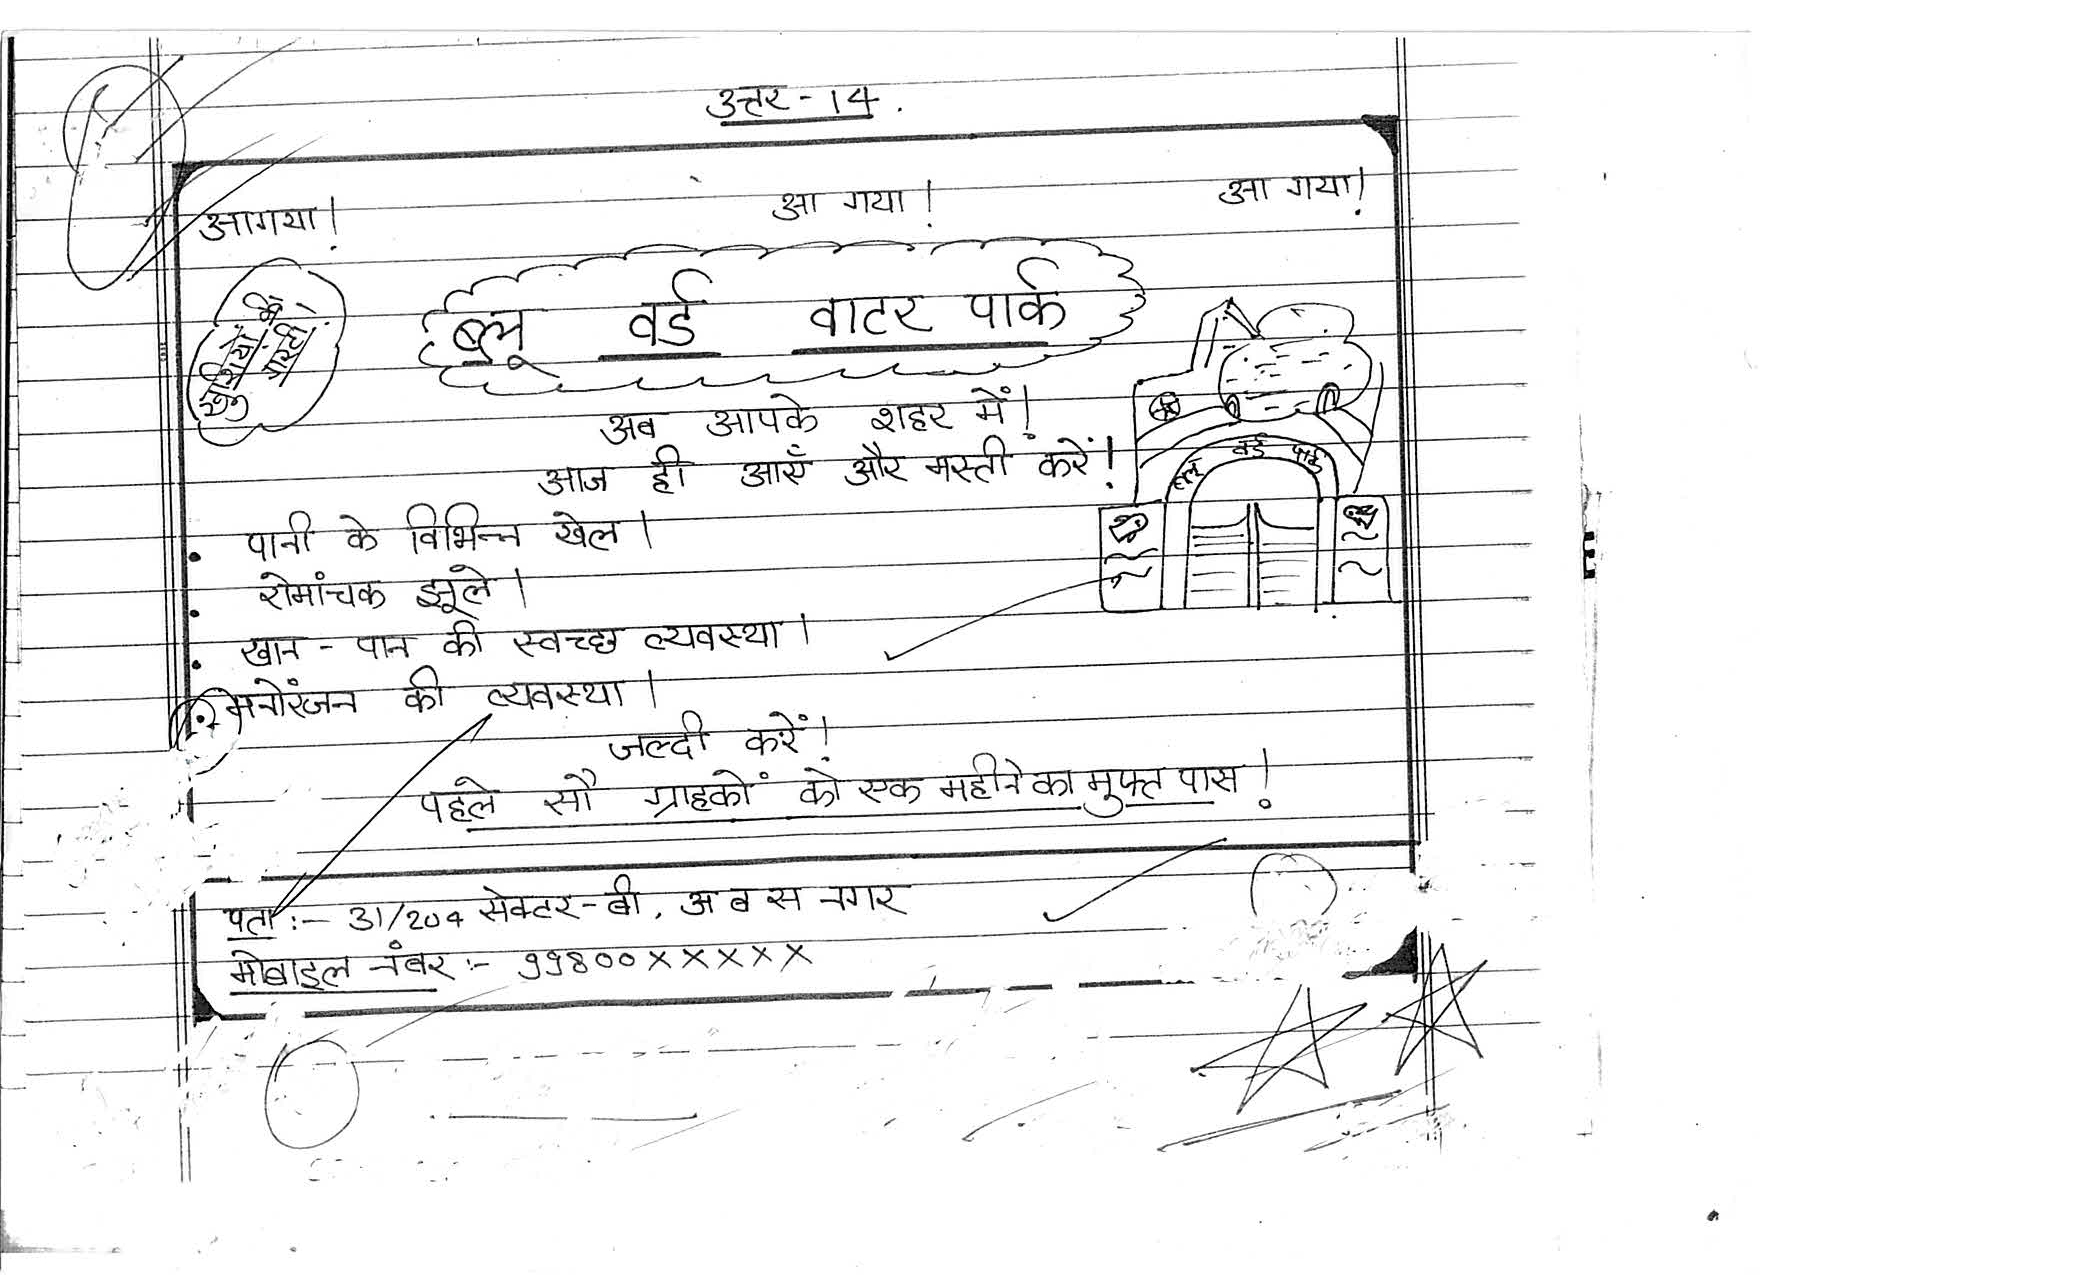 उत्तर - 14.
आगया! आ गया! आ गया!
ब्लू वर्ड वाटर पार्क
खुशियों की गारंटी!
अब आपके शहर में!
आज ही आएँ और मस्ती करें!
ब्लू वर्ड पार्क
• पानी के विभिन्न खेल।
• रोमांचक झूले।
• खान - पान की स्वच्छ व्यवस्था।
• मनोरंजन की व्यवस्था।
जल्दी करें!
पहले सौ ग्राहकों को एक महीने का मुफ्त पास!
पता :- 31/204 सेक्टर - बी, अ ब स नगर
मोबाइल नंबर :- 99800xxxxx